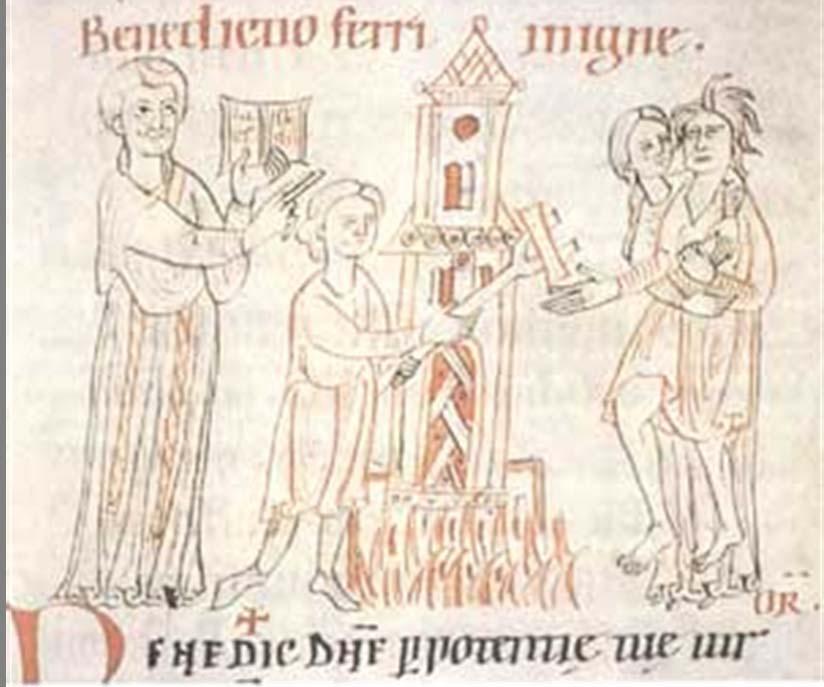 Benedictio ferri in igne.
OR̄.
BENEDIC DNE p potentie tue uir